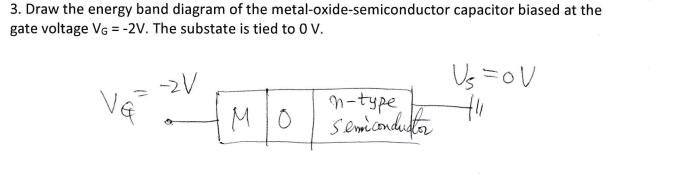 3. Draw the energy band diagram of the metal-oxide-semiconductor capacitor biased at the
gate voltage VG = -2V. The substate is tied to 0 V.
VG = -2V
M
O
n-type
semiconductor
VS = 0V